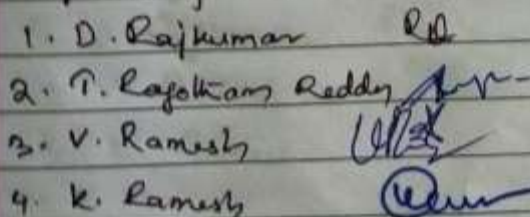 1. D. Rajkumar
2. T. Reddy
3. V. Ramesh
4. K. Ramesh